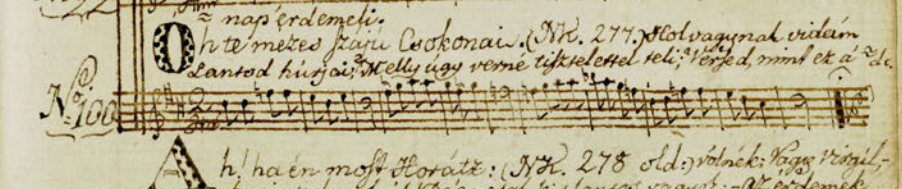 nap érdemeli.
Oh te mézes szájú Csokonai. (NK. 277.) Hol vagynak vídám
Lantod húrjai; Melly úgy verne tisztelettel teli; Versed, mint ez á
No. 100
Ah! ha én most Horátz: (NK. 278 old:) vólnék: Vagy Virgil,-
vagyok: az érdemek